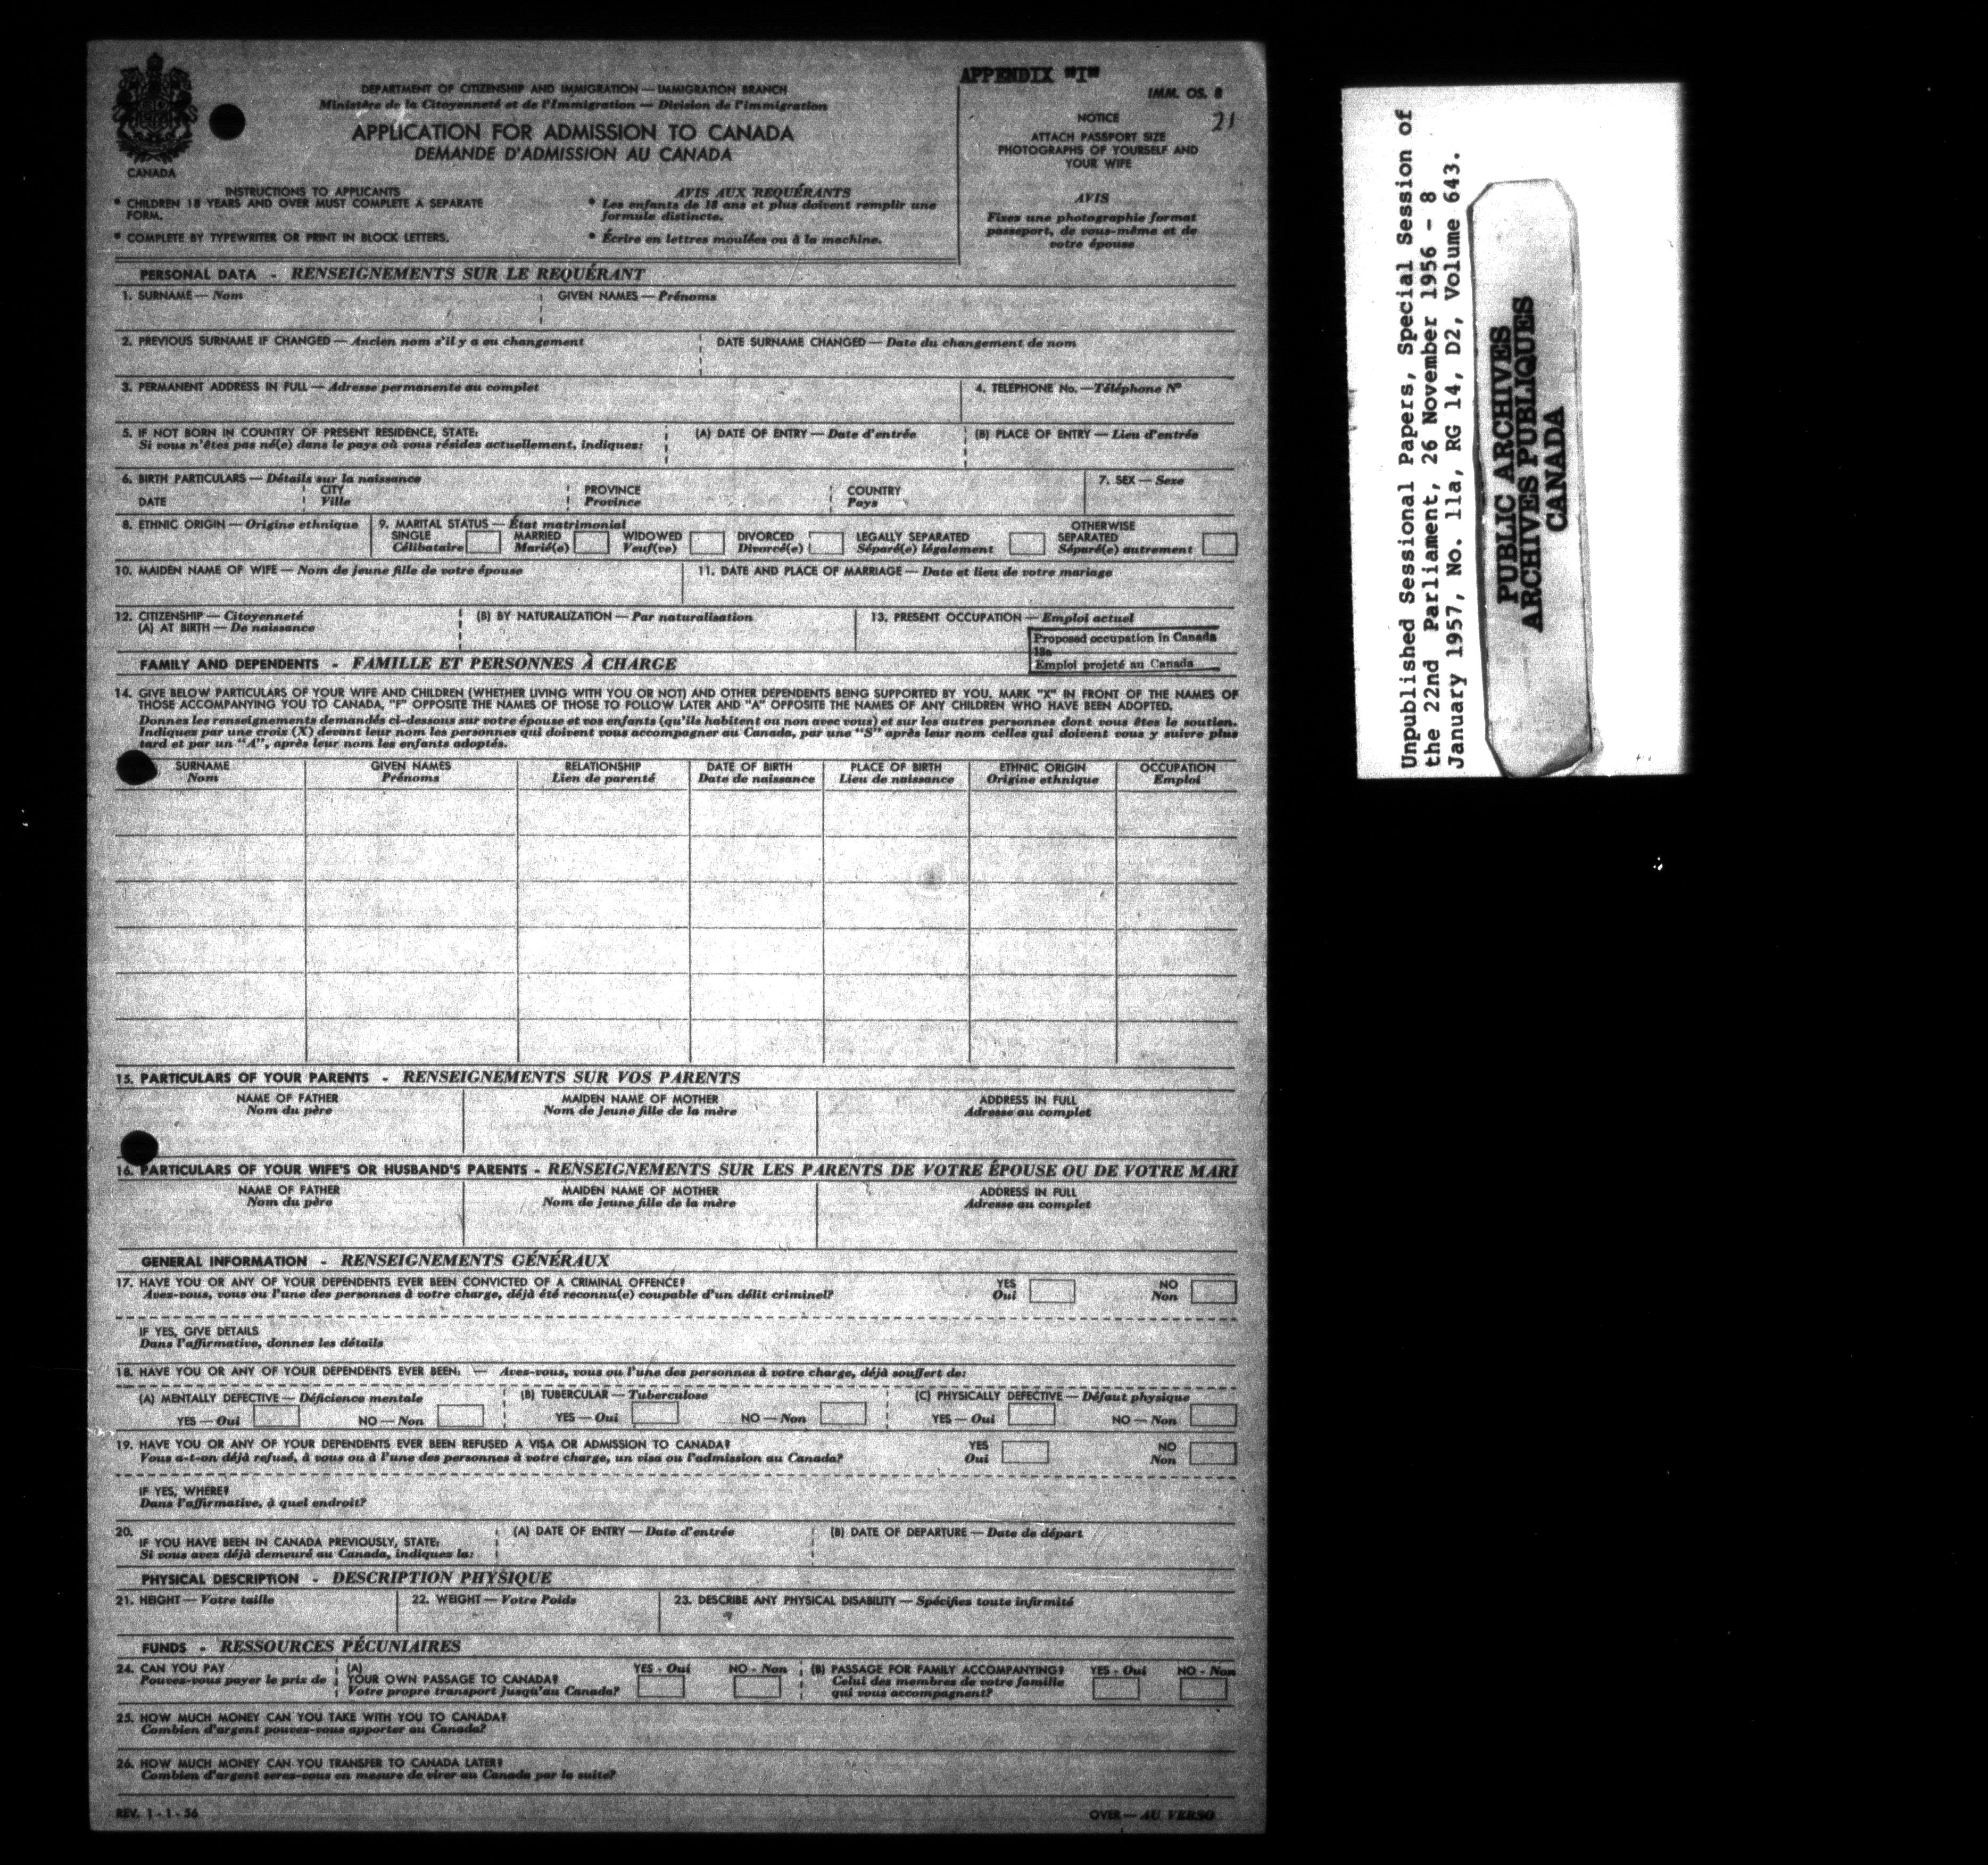 APPENDIX "I"
IMM. OS. 8
21
CANADA
DEPARTMENT OF CITIZENSHIP AND IMMIGRATION — IMMIGRATION BRANCH
Ministère de la Citoyenneté et de l'Immigration — Division de l'immigration
APPLICATION FOR ADMISSION TO CANADA
DEMANDE D'ADMISSION AU CANADA
NOTICE
ATTACH PASSPORT SIZE
PHOTOGRAPHS OF YOURSELF AND
YOUR WIFE
AVIS
Fixez une photographie format
passeport, de vous-même et de
votre épouse
INSTRUCTIONS TO APPLICANTS
* CHILDREN 18 YEARS AND OVER MUST COMPLETE A SEPARATE
FORM.
* COMPLETE BY TYPEWRITER OR PRINT IN BLOCK LETTERS.
AVIS AUX REQUÉRANTS
* Les enfants de 18 ans et plus doivent remplir une
formule distincte.
* Écrire en lettres moulées ou à la machine.
PERSONAL DATA - RENSEIGNEMENTS SUR LE REQUÉRANT
1. SURNAME — Nom GIVEN NAMES — Prénoms
2. PREVIOUS SURNAME IF CHANGED — Ancien nom s'il y a eu changement DATE SURNAME CHANGED — Date du changement de nom
3. PERMANENT ADDRESS IN FULL — Adresse permanente au complet 4. TELEPHONE No. — Téléphone Nº
5. IF NOT BORN IN COUNTRY OF PRESENT RESIDENCE, STATE: (A) DATE OF ENTRY — Date d'entrée (B) PLACE OF ENTRY — Lieu d'entrée
Si vous n'êtes pas né(e) dans le pays où vous résidez actuellement, indiquez:
6. BIRTH PARTICULARS — Détails sur la naissance 7. SEX — Sexe
DATE CITY PROVINCE COUNTRY
Ville Province Pays
8. ETHNIC ORIGIN — Origine ethnique 9. MARITAL STATUS — État matrimonial
SINGLE MARRIED WIDOWED DIVORCED LEGALLY SEPARATED OTHERWISE SEPARATED
Célibataire Marié(e) Veuf(ve) Divorcé(e) Séparé(e) légalement Séparé(e) autrement
10. MAIDEN NAME OF WIFE — Nom de jeune fille de votre épouse 11. DATE AND PLACE OF MARRIAGE — Date et lieu de votre mariage
12. CITIZENSHIP — Citoyenneté (B) BY NATURALIZATION — Par naturalisation 13. PRESENT OCCUPATION — Emploi actuel
(A) AT BIRTH — De naissance
Proposed occupation in Canada
13a
Emploi projeté au Canada
FAMILY AND DEPENDENTS - FAMILLE ET PERSONNES À CHARGE
14. GIVE BELOW PARTICULARS OF YOUR WIFE AND CHILDREN (WHETHER LIVING WITH YOU OR NOT) AND OTHER DEPENDENTS BEING SUPPORTED BY YOU. MARK "X" IN FRONT OF THE NAMES OF
THOSE ACCOMPANYING YOU TO CANADA, "F" OPPOSITE THE NAMES OF THOSE TO FOLLOW LATER AND "A" OPPOSITE THE NAMES OF ANY CHILDREN WHO HAVE BEEN ADOPTED.
Donnez les renseignements demandés ci-dessous sur votre épouse et vos enfants (qu'ils habitent ou non avec vous) et sur les autres personnes dont vous êtes le soutien.
Indiquez par une croix (X) devant leur nom les personnes qui doivent vous accompagner au Canada, par une "S" après leur nom celles qui doivent vous y suivre plus
tard et par un "A", après leur nom les enfants adoptés.
SURNAME GIVEN NAMES RELATIONSHIP DATE OF BIRTH PLACE OF BIRTH ETHNIC ORIGIN OCCUPATION
Nom Prénoms Lien de parenté Date de naissance Lieu de naissance Origine ethnique Emploi
15. PARTICULARS OF YOUR PARENTS - RENSEIGNEMENTS SUR VOS PARENTS
NAME OF FATHER MAIDEN NAME OF MOTHER ADDRESS IN FULL
Nom du père Nom de jeune fille de la mère Adresse au complet
16. PARTICULARS OF YOUR WIFE'S OR HUSBAND'S PARENTS - RENSEIGNEMENTS SUR LES PARENTS DE VOTRE ÉPOUSE OU DE VOTRE MARI
NAME OF FATHER MAIDEN NAME OF MOTHER ADDRESS IN FULL
Nom du père Nom de jeune fille de la mère Adresse au complet
GENERAL INFORMATION - RENSEIGNEMENTS GÉNÉRAUX
17. HAVE YOU OR ANY OF YOUR DEPENDENTS EVER BEEN CONVICTED OF A CRIMINAL OFFENCE? YES NO
Avez-vous, vous ou l'une des personnes à votre charge, déjà été reconnu(e) coupable d'un délit criminel? Oui Non
IF YES, GIVE DETAILS
Dans l'affirmative, donnez les détails
18. HAVE YOU OR ANY OF YOUR DEPENDENTS EVER BEEN: — Avez-vous, vous ou l'une des personnes à votre charge, déjà souffert de:
(A) MENTALLY DEFECTIVE — Déficience mentale (B) TUBERCULAR — Tuberculose (C) PHYSICALLY DEFECTIVE — Défaut physique
YES — Oui NO — Non YES — Oui NO — Non YES — Oui NO — Non
19. HAVE YOU OR ANY OF YOUR DEPENDENTS EVER BEEN REFUSED A VISA OR ADMISSION TO CANADA? YES NO
Vous a-t-on déjà refusé, à vous ou à l'une des personnes à votre charge, un visa ou l'admission au Canada? Oui Non
IF YES, WHERE?
Dans l'affirmative, à quel endroit?
20. (A) DATE OF ENTRY — Date d'entrée (B) DATE OF DEPARTURE — Date de départ
IF YOU HAVE BEEN IN CANADA PREVIOUSLY, STATE:
Si vous avez déjà demeuré au Canada, indiquez la:
PHYSICAL DESCRIPTION - DESCRIPTION PHYSIQUE
21. HEIGHT — Votre taille 22. WEIGHT — Votre Poids 23. DESCRIBE ANY PHYSICAL DISABILITY — Spécifiez toute infirmité
FUNDS - RESSOURCES PÉCUNIAIRES
24. CAN YOU PAY (A) YES - Oui NO - Non (B) PASSAGE FOR FAMILY ACCOMPANYING? YES - Oui NO - Non
Pouvez-vous payer le prix de YOUR OWN PASSAGE TO CANADA? Celui des membres de votre famille
Votre propre transport jusqu'au Canada? qui vous accompagnent?
25. HOW MUCH MONEY CAN YOU TAKE WITH YOU TO CANADA?
Combien d'argent pouvez-vous apporter au Canada?
26. HOW MUCH MONEY CAN YOU TRANSFER TO CANADA LATER?
Combien d'argent serez-vous en mesure de virer au Canada par la suite?
REV. 1 - 1 - 56 OVER — AU VERSO
Unpublished Sessional Papers, Special Session of
the 22nd Parliament, 26 November 1956 - 8
January 1957, No. 11a, RG 14, D2, Volume 643.
PUBLIC ARCHIVES
ARCHIVES PUBLIQUES
CANADA